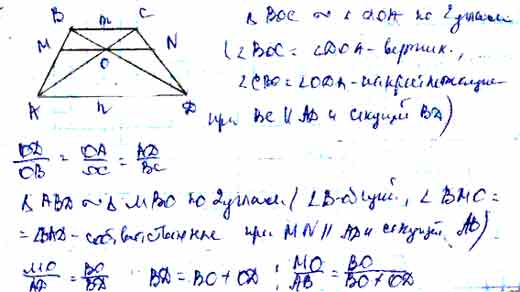 B m C
M N
O
A n D
Δ BOC ~ Δ DOA по 2 углам
(∠BOC = ∠DOA - вертик.,
∠CBO = ∠ODA - накрест лежащие
при BC || AD и секущей BD)
OD/OB = OA/OC = AD/BC
Δ ABD ~ Δ MBO по 2 углам (∠B - общий, ∠BMO =
= ∠BAD - соответственные при MN || AD и секущей AB).
MO/AD = BO/BD BD = BO + OD ; MO/AB = BO/BO + OD